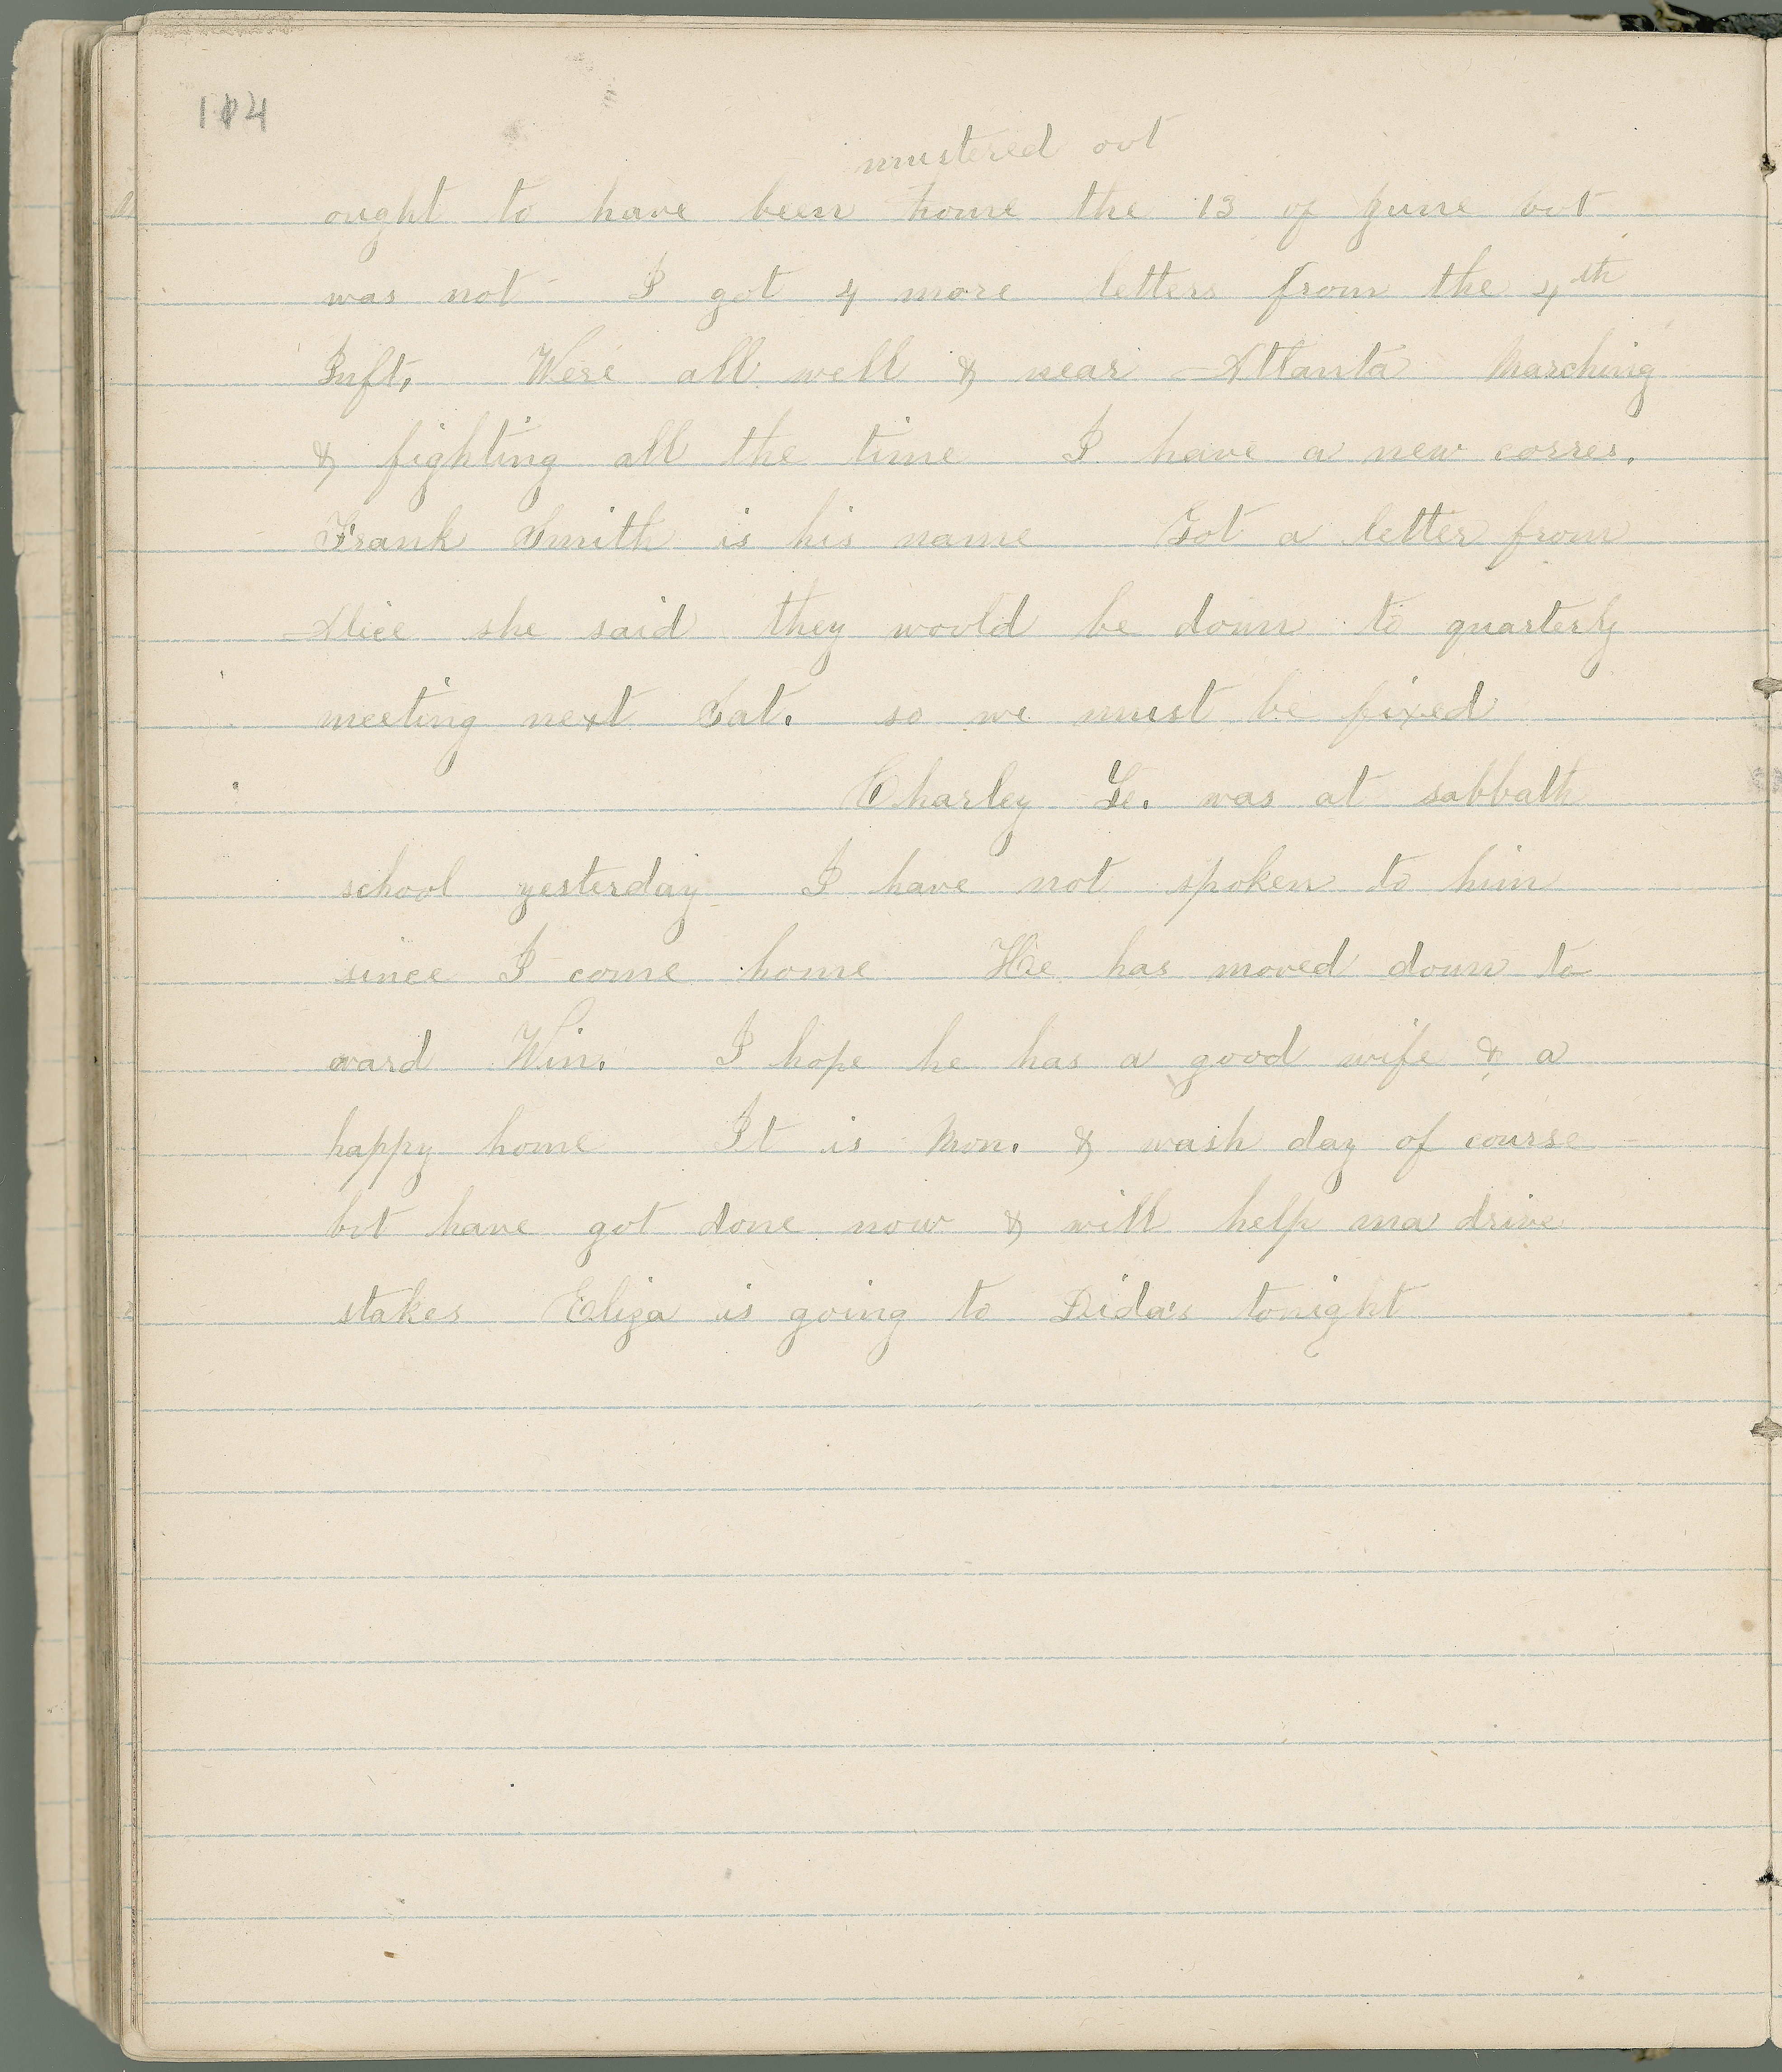 104
mustered out
ought to have been home the 13 of June but
was not I got 4 more letters from the 4th
Inft. Were all well & near Atlanta Marching
& fighting all the time I have a new corres.
Frank Smith is his name Got a letter from
Alice she said they would be down to quarterly
meeting next Sat. so we must be fixed
Charley Le. was at sabbath
school yesterday I have not spoken to him
since I come home He has moved down to
ward Win. I hope he has a good wife & a
happy home It is Mon. & wash day of course
but have got done now & will help ma drive
stakes Eliza is going to Dida's tonight